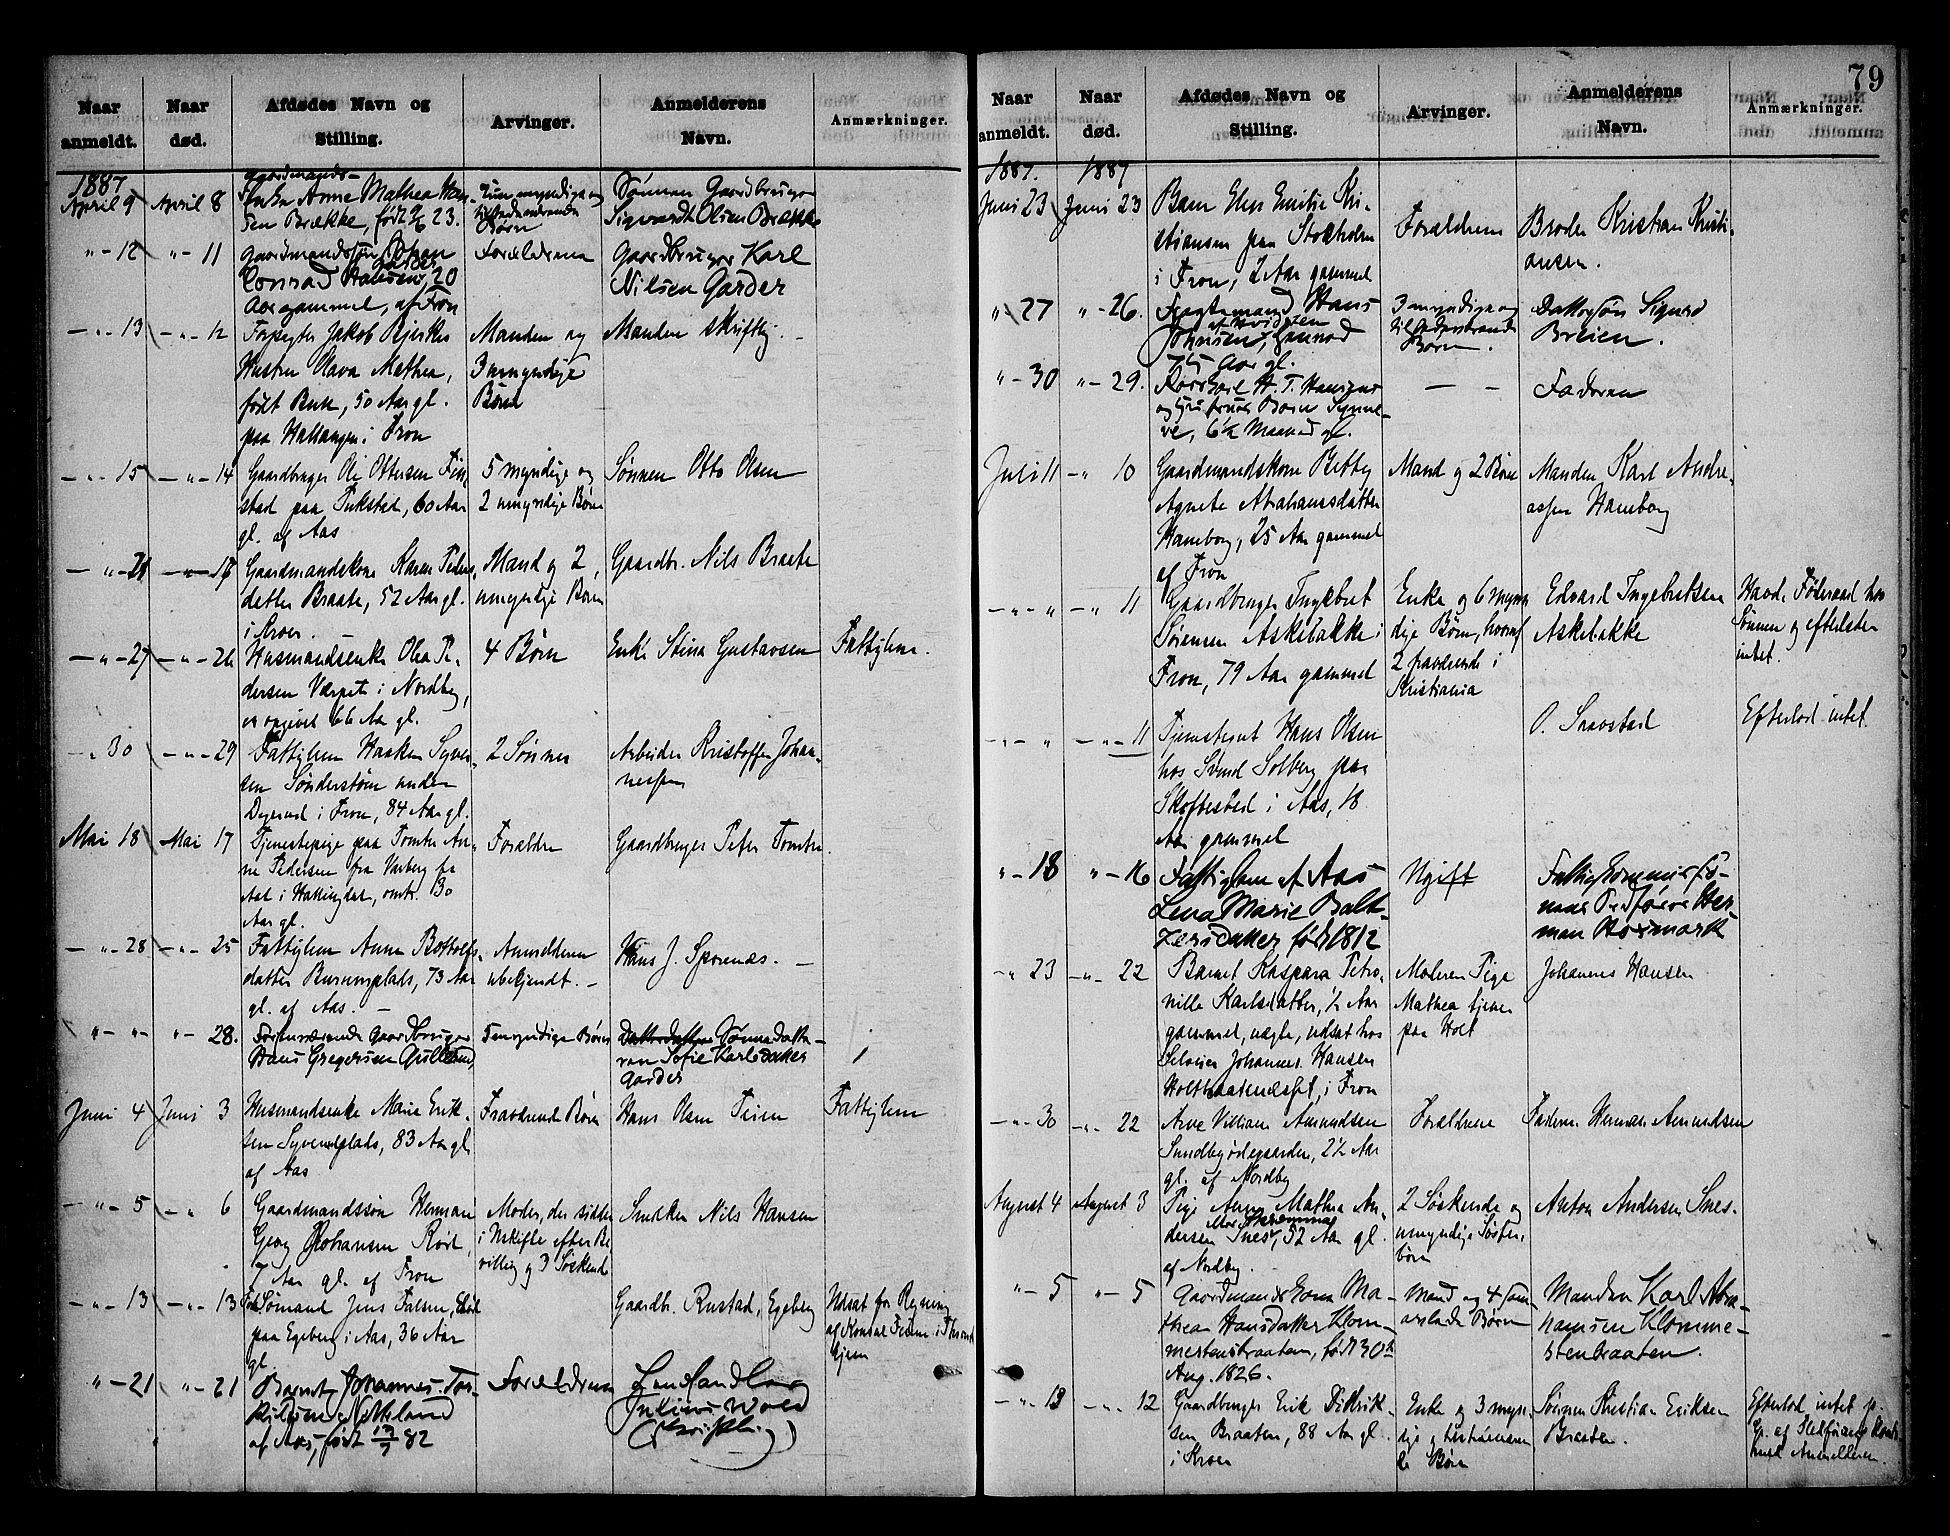 79
Naar anmeldt. Naar død. Afdødes Navn og Stilling. Arvinger. Anmelderens Navn. Anmærkninger.
1887
April 9 April 8 Gaardmands-
Enke Anne Mathea Han-
sen Brække, født 23.
Børn
Sønnen Gaardbruger
Sigvardt Olsen Brække
" - 12 " - 11 Gaardmandssøn Johan
Conrad Hansen, 20
Aar gammel, af Fron
Forældrene
Gaardbruger Karl
Nilsen Garder
- " - 13 - " - 12 Jakob
Hustru Olava Mathea,
født Buk, 50 Aar gl.
paa Hallangen i Fron
Manden og
3 umyndige
Børn
Manden skriftlig. -
- " - 15 - " - 14 Gaardbruger Ole Ottersen Fin-
stad paa Tukstad, 60 Aar
gl. af Aas
5 myndige og
2 umyndige Børn
Sønnen Otto Olsen
- " - 21 - " - 17 Gaardmandskone Karen Peders-
datter Braate, 52 Aar gl.
i Kroer. -
Mand og 2
umyndige Børn
Gaardbr. Nils Braate
- " - 27 - " - 26 Husmandsenke Olea Pe-
dersen Værpet i Nordby,
er opgivet 66 Aar gl.
4 Børn
Enke Stina Gustavsen
Fattiglem.
- " 30 - " - 29 Fattiglem Haaken Syver-
sen Sønderstøen under
Dyrerud i Fron, 84 Aar gl.
2 Sønner
Arbeider Kristoffer Johan-
nessen
Mai 18 Mai 17 Tjenestepige paa Tomter An-
ne Pedersen fra Varberg fra
Aal i Hallingdal, omtr. 30
Aar gl.
Forældre
Gaardbruger Peter Tomter
- " - 28 - " - 25 Fattiglem Anne Bottolfs-
datter Burumsplads, 73 Aar
gl. af Aas. -
Anmelderen
ubekjendt. -
Hans J. Sporenæs. -
" - " - " - 28. Forhenværende Gaardbruger
Hans Gregersen
5 myndige Børn
Sønnedatte-
ren Sofie Karlsdatter
Garder
Juni 4 Juni 3 Husmandsenke Marie Erik-
sen Syverudplads, 83 Aar gl.
af Aas
Fraværende Børn
Hans Olsen Teien
Fattiglem
- " - 5 - " 6 Gaardmandssøn Herman
Georg Johansen Roit,
7 Aar gl. af Fron
Moder, der sidder
i Uskifte efter Be-
villing og 3 Søskende
Smeden Nils Hansen
- " - 13 - " - 13 Sømand Jens Falsen,
paa Egeberg i Aas, 36 Aar
gl.
Gaardbr. Rustad, Egeberg
Udsat for Regning
af Konsul i Thrond-
hjem
" - 21 " - 21 Barnet Johannes Tor-
kilsen Nettland
af Aas, født 82
Forældrene
Landhandler
Julius Wold
(skriftlig)
Naar anmeldt. Naar død. Afdødes Navn og Stilling. Arvinger. Anmelderens Navn. Anmærkninger.
1887. 1887
Juni 23 Juni 23 Barn Elen Emilie Kri-
stiansen paa Stokholm
i Fron, 2 Aar gammel
Forældrene
Broder Kristian Kristi-
ansen.
" 27 " - 26. Hans
Johnsen,
75 Aar gl.
3 myndige og
tilstedeværende
Børn.
Dattersøn Sigurd
Breien.
" - 30 " - 29. H. T. Hansens
og Hustrues Barn Synnø-
ve, 6½ Maaned gl.
- -
Faderen
Juli 11 - " 10 Gaardmandskone Betty
Agnete Abrahamsdatter
Hamborg, 25 Aar gammel
af Fron
Mand og 2 Børn
Manden Karl Andre-
assen Hamborg
- " - " - " 11 Gaardbruger Ingebret
Sørensen Askebakke i
Fron, 79 Aar gammel
Enke og 6 myn-
dige Børn, hvoraf
2 fraværende i
Kristiania
Edvard Ingebretsen
Askebakke
Havde Føderaad hos
Sønnen og efterlader
intet.
- " - " - " - 11 Tjenestegut Hans Olsen
hos Svend Solberg paa
Skoftestad i Aas, 18
Aar gammel
O. Snavstad
Efterlod intet
" - 18 " - 16 Fattiglem af Aas
Lena Marie Balt-
zersdatter født 1812
Ugift
Fattigkommissio-
nær Ordfører Her-
man Holmark
- " 23 - " - 22 Barnet Kaspara Petro-
nille Karlsdatter, ½ Aar
gammel, uægte, udsat hos
Selveier Johannes Hansen
Holtbraatenæsset, i Fron
Moderen Pige
Mathea tjener
paa Holt
Johannes Hansen
- " - 30 - " - 22 Arve Villiam Amundsen
Sundbyødegaarden, 2½ Aar
gl. af Nordby
Forældrene
Faderen Herman Amundsen
August 4 August 3 Pige Anne Mathea An-
dersen Snes, 52 Aar gl.
af Nordby. -
2 Søskende og
umyndige Søster-
børn
Anton Andersen Snes.
" - 5 " - 5 Gaardmandskone Ma-
thea Hansdatter Klom-
mestenbraaten, født 30te
Aug. 1826.
Mand og 4 sam-
avlede Børn
Manden Karl Abra-
hamsen Klomme-
stenbraaten.
- " - 13 - " - 12 Gaardbruger Erik Didrik-
sen Braaten, 88 Aar gl.
i Kroer
Enke og 3 myn-
dige
Børn
Sønnen Kristian Eriksen
Braaten.
Efterlod intet
Anmelderen.